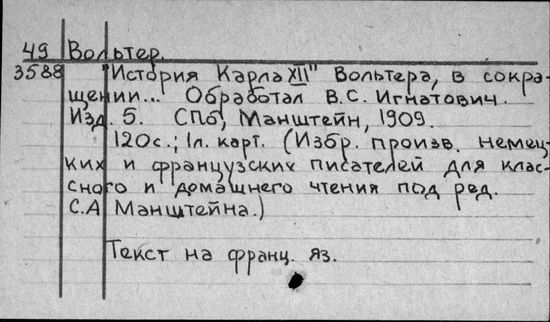 49 Вольтер.
3588 "История Карла XII" Вольтера, в сокра-
щении... Обработал В.С. Игнатович.
Изд. 5. СПб, Манштейн, 1909.
120с.; 1л. карт. (Избр. произв. немец-
ких и французских писателей для клас-
сного и домашнего чтения под ред.
С.А Манштейна.)
Текст на франц. яз.